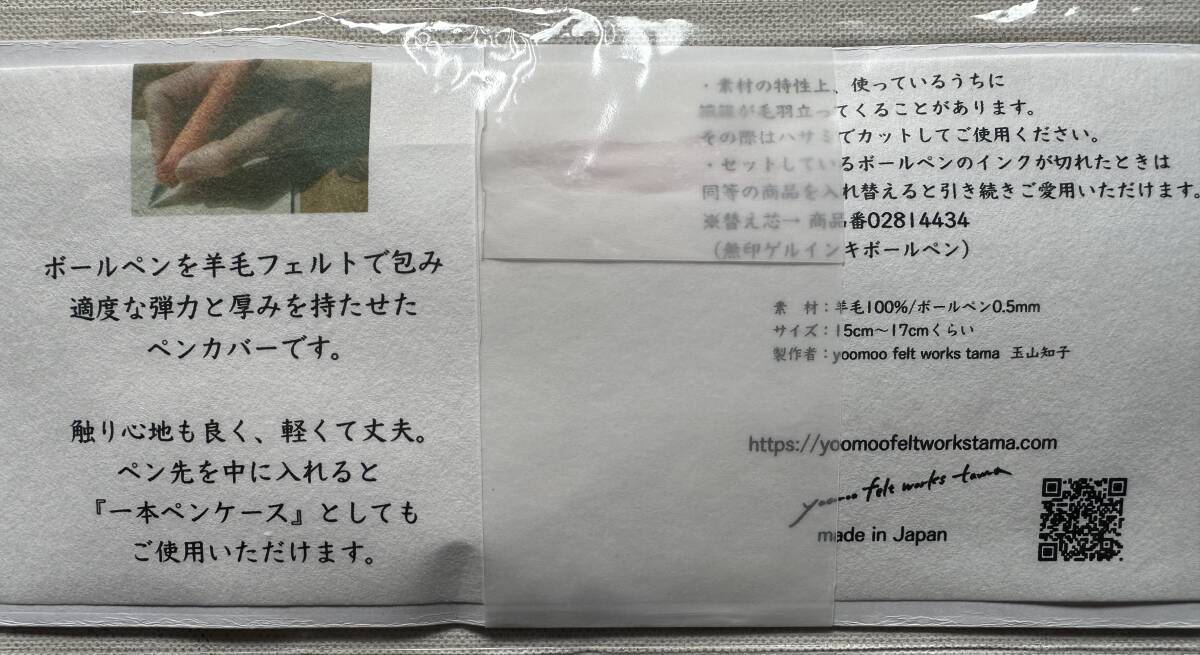 ボールペンを羊毛フェルトで包み
適度な弾力と厚みを持たせた
ペンカバーです。
触り心地も良く、軽くて丈夫。
ペン先を中に入れると
『一本ペンケース』としても
ご使用いただけます。
・素材の特性上、使っているうちに
繊維が毛羽立ってくることがあります。
その際はハサミでカットしてご使用ください。
・セットしているボールペンのインクが切れたときは
同等の商品を入れ替えると引き続きご愛用いただけます。
※替え芯→ 商品番02814434
（無印ゲルインキボールペン）
素　材：羊毛100%/ボールペン0.5mm
サイズ：15cm〜17cmくらい
製作者：yoomoo felt works tama 玉山知子
https://yoomoofeltworkstama.com
yoomoo felt works tama
made in Japan